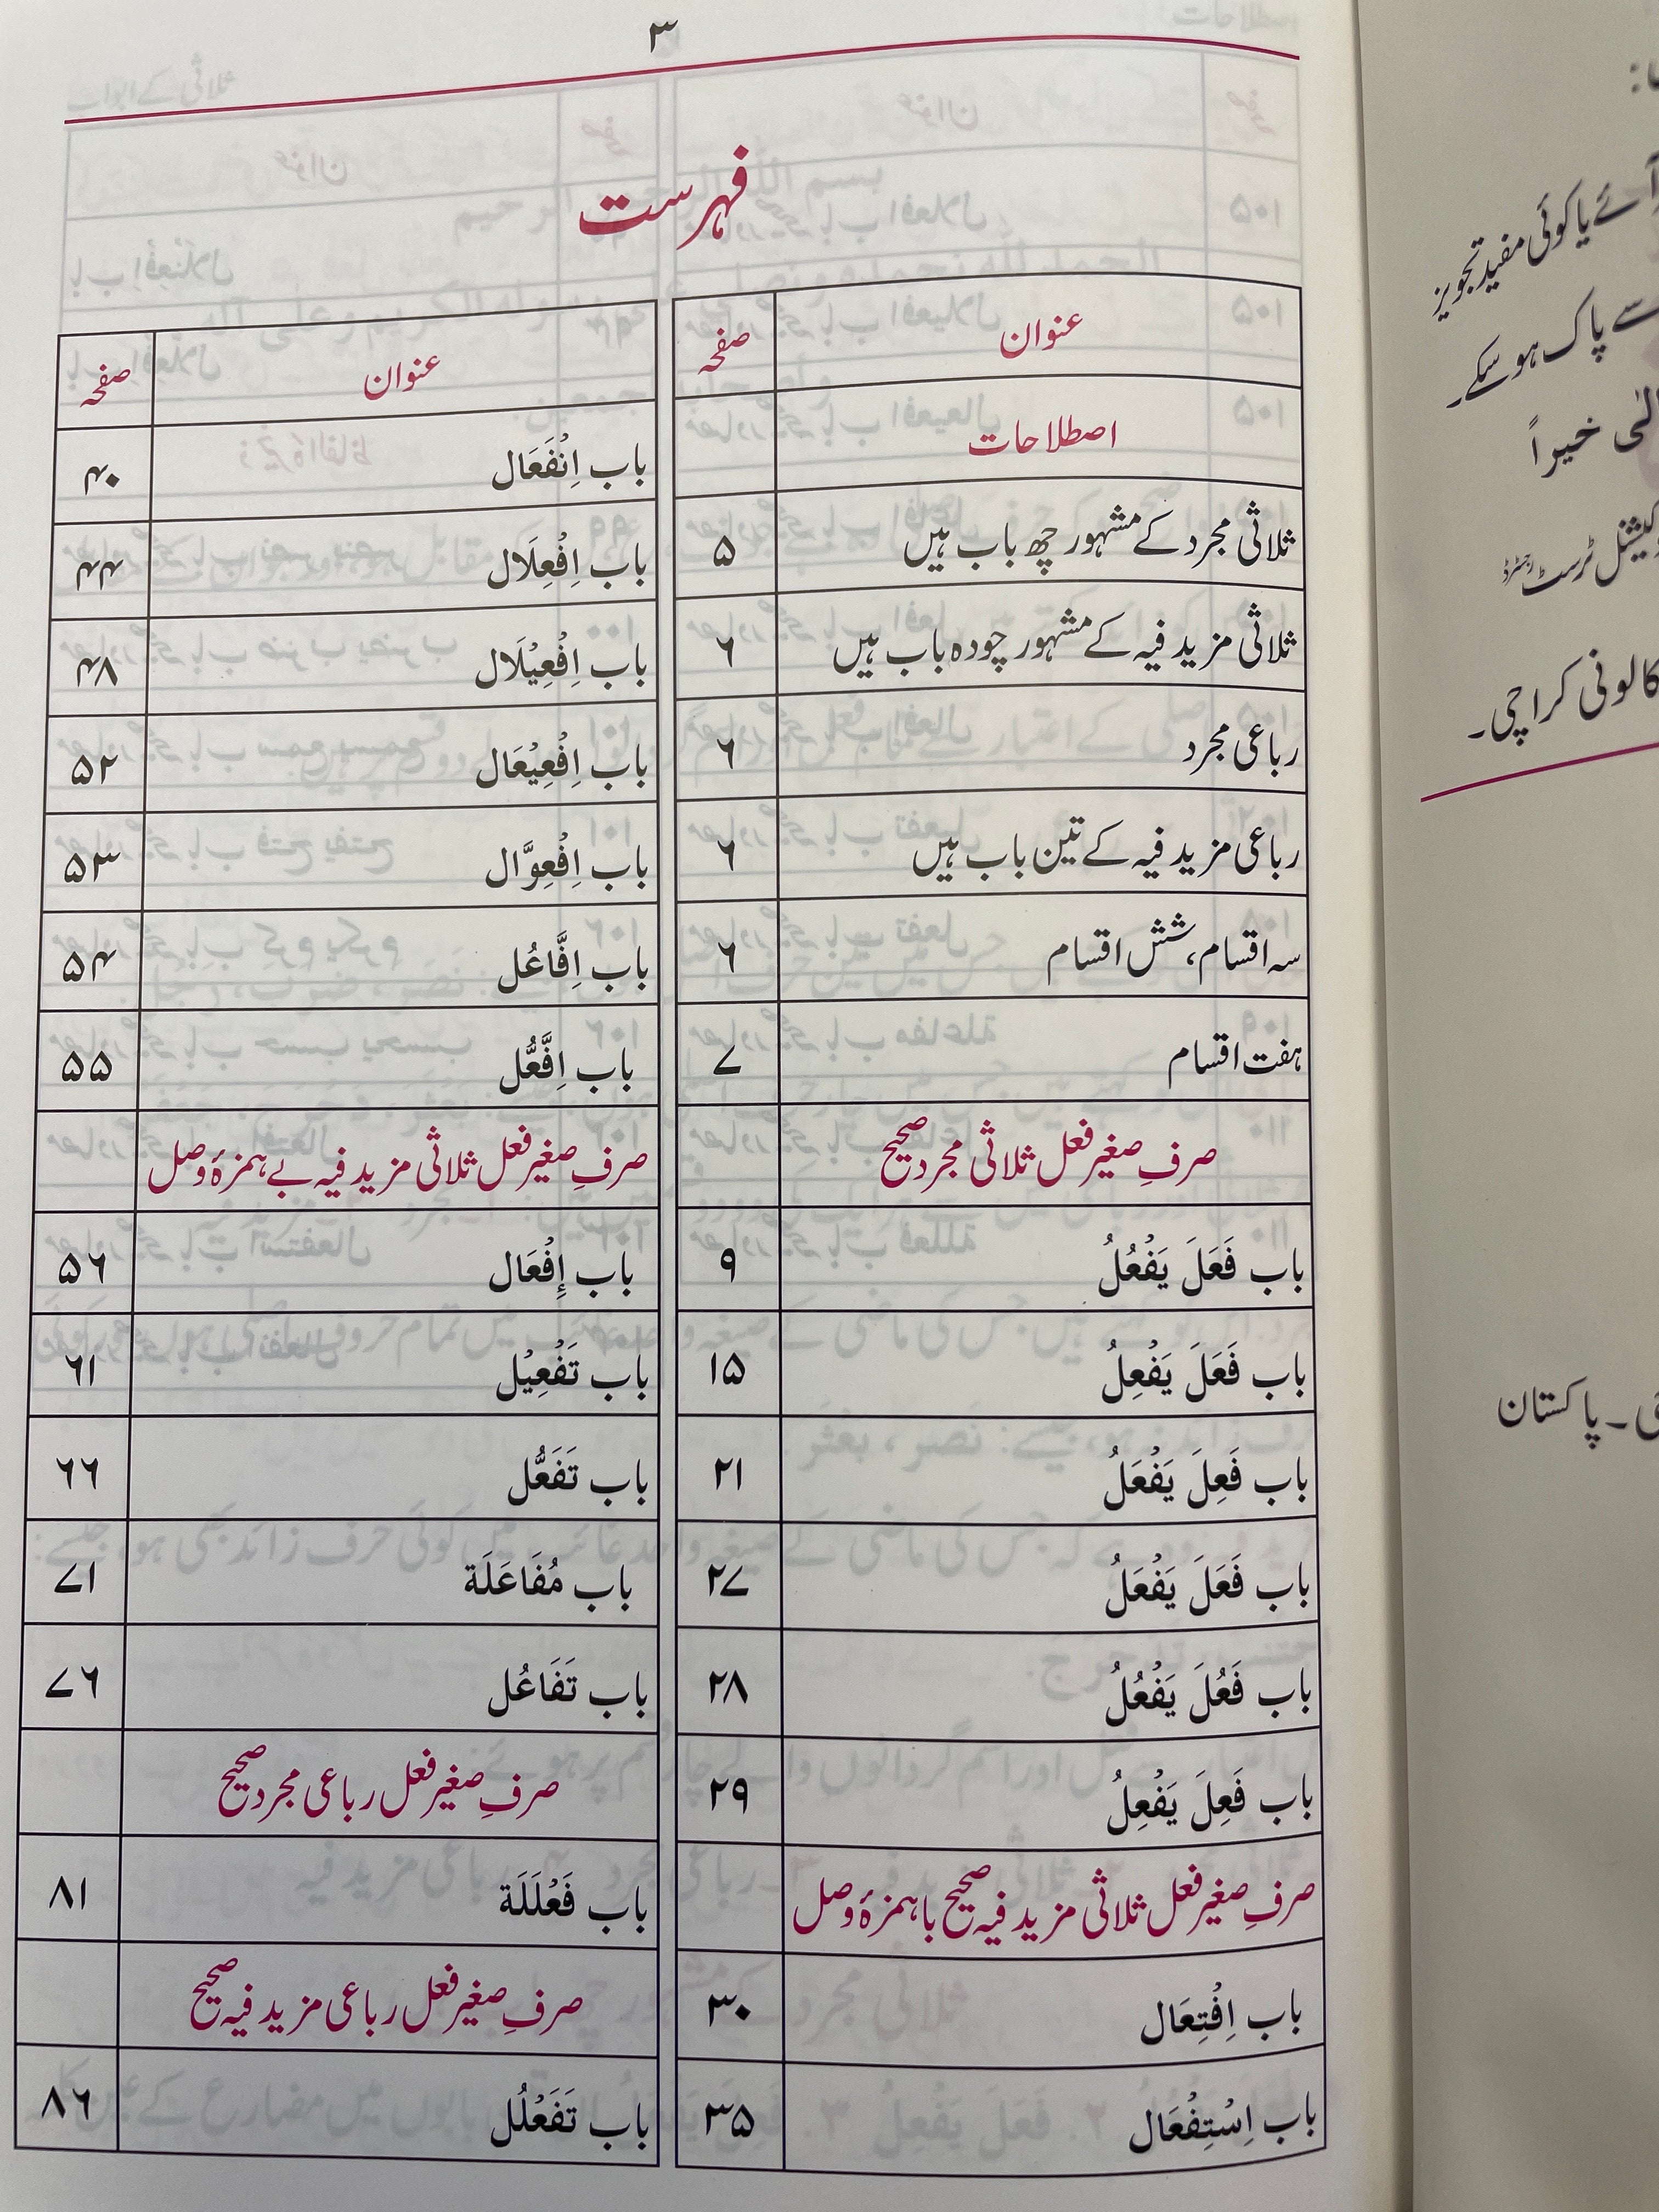 ۳
فہرست
عنوان صفحہ
اصطلاحات
ثلاثی مجرد کے مشہور چھ باب ہیں ۵
ثلاثی مزید فیہ کے مشہور چودہ باب ہیں ۶
رباعی مجرد ۶
رباعی مزید فیہ کے تین باب ہیں ۶
سہ اقسام، شش اقسام ۶
ہفت اقسام ۷
صرفِ صغیر فعل ثلاثی مجرد صحیح
باب فَعَلَ یَفْعُلُ ۹
باب فَعَلَ یَفْعِلُ ۱۵
باب فَعِلَ یَفْعَلُ ۲۱
باب فَعَلَ یَفْعَلُ ۲۷
باب فَعُلَ یَفْعُلُ ۲۸
باب فَعِلَ یَفْعِلُ ۲۹
صرفِ صغیر فعل ثلاثی مزید فیہ صحیح با ہمزۂ وصل
باب اِفْتِعَال ۳۰
باب اِسْتِفْعَال ۳۵
عنوان صفحہ
باب اِنْفَعَال ۴۰
باب اِفْعِلَال ۴۴
باب اِفْعِيْلَال ۴۸
باب اِفْعِيْعَال ۵۲
باب اِفْعِوَّال ۵۳
باب اِفَّاعُل ۵۴
باب اِفَّعُّل ۵۵
صرفِ صغیر فعل ثلاثی مزید فیہ بے ہمزۂ وصل
باب إِفْعَال ۵۶
باب تَفْعِيْل ۶۱
باب تَفَعُّل ۶۶
باب مُفَاعَلَة ۷۱
باب تَفَاعُل ۷۶
صرفِ صغیر فعل رباعی مجرد صحیح
باب فَعْلَلَة ۸۱
صرفِ صغیر فعل رباعی مزید فیہ صحیح
باب تَفَعْلُل ۸۶
آئے یا کوئی مفید تجویز
سے پاک ہو سکے۔
خیراً
ٹرسٹ رجسٹرڈ
کالونی کراچی۔
پاکستان